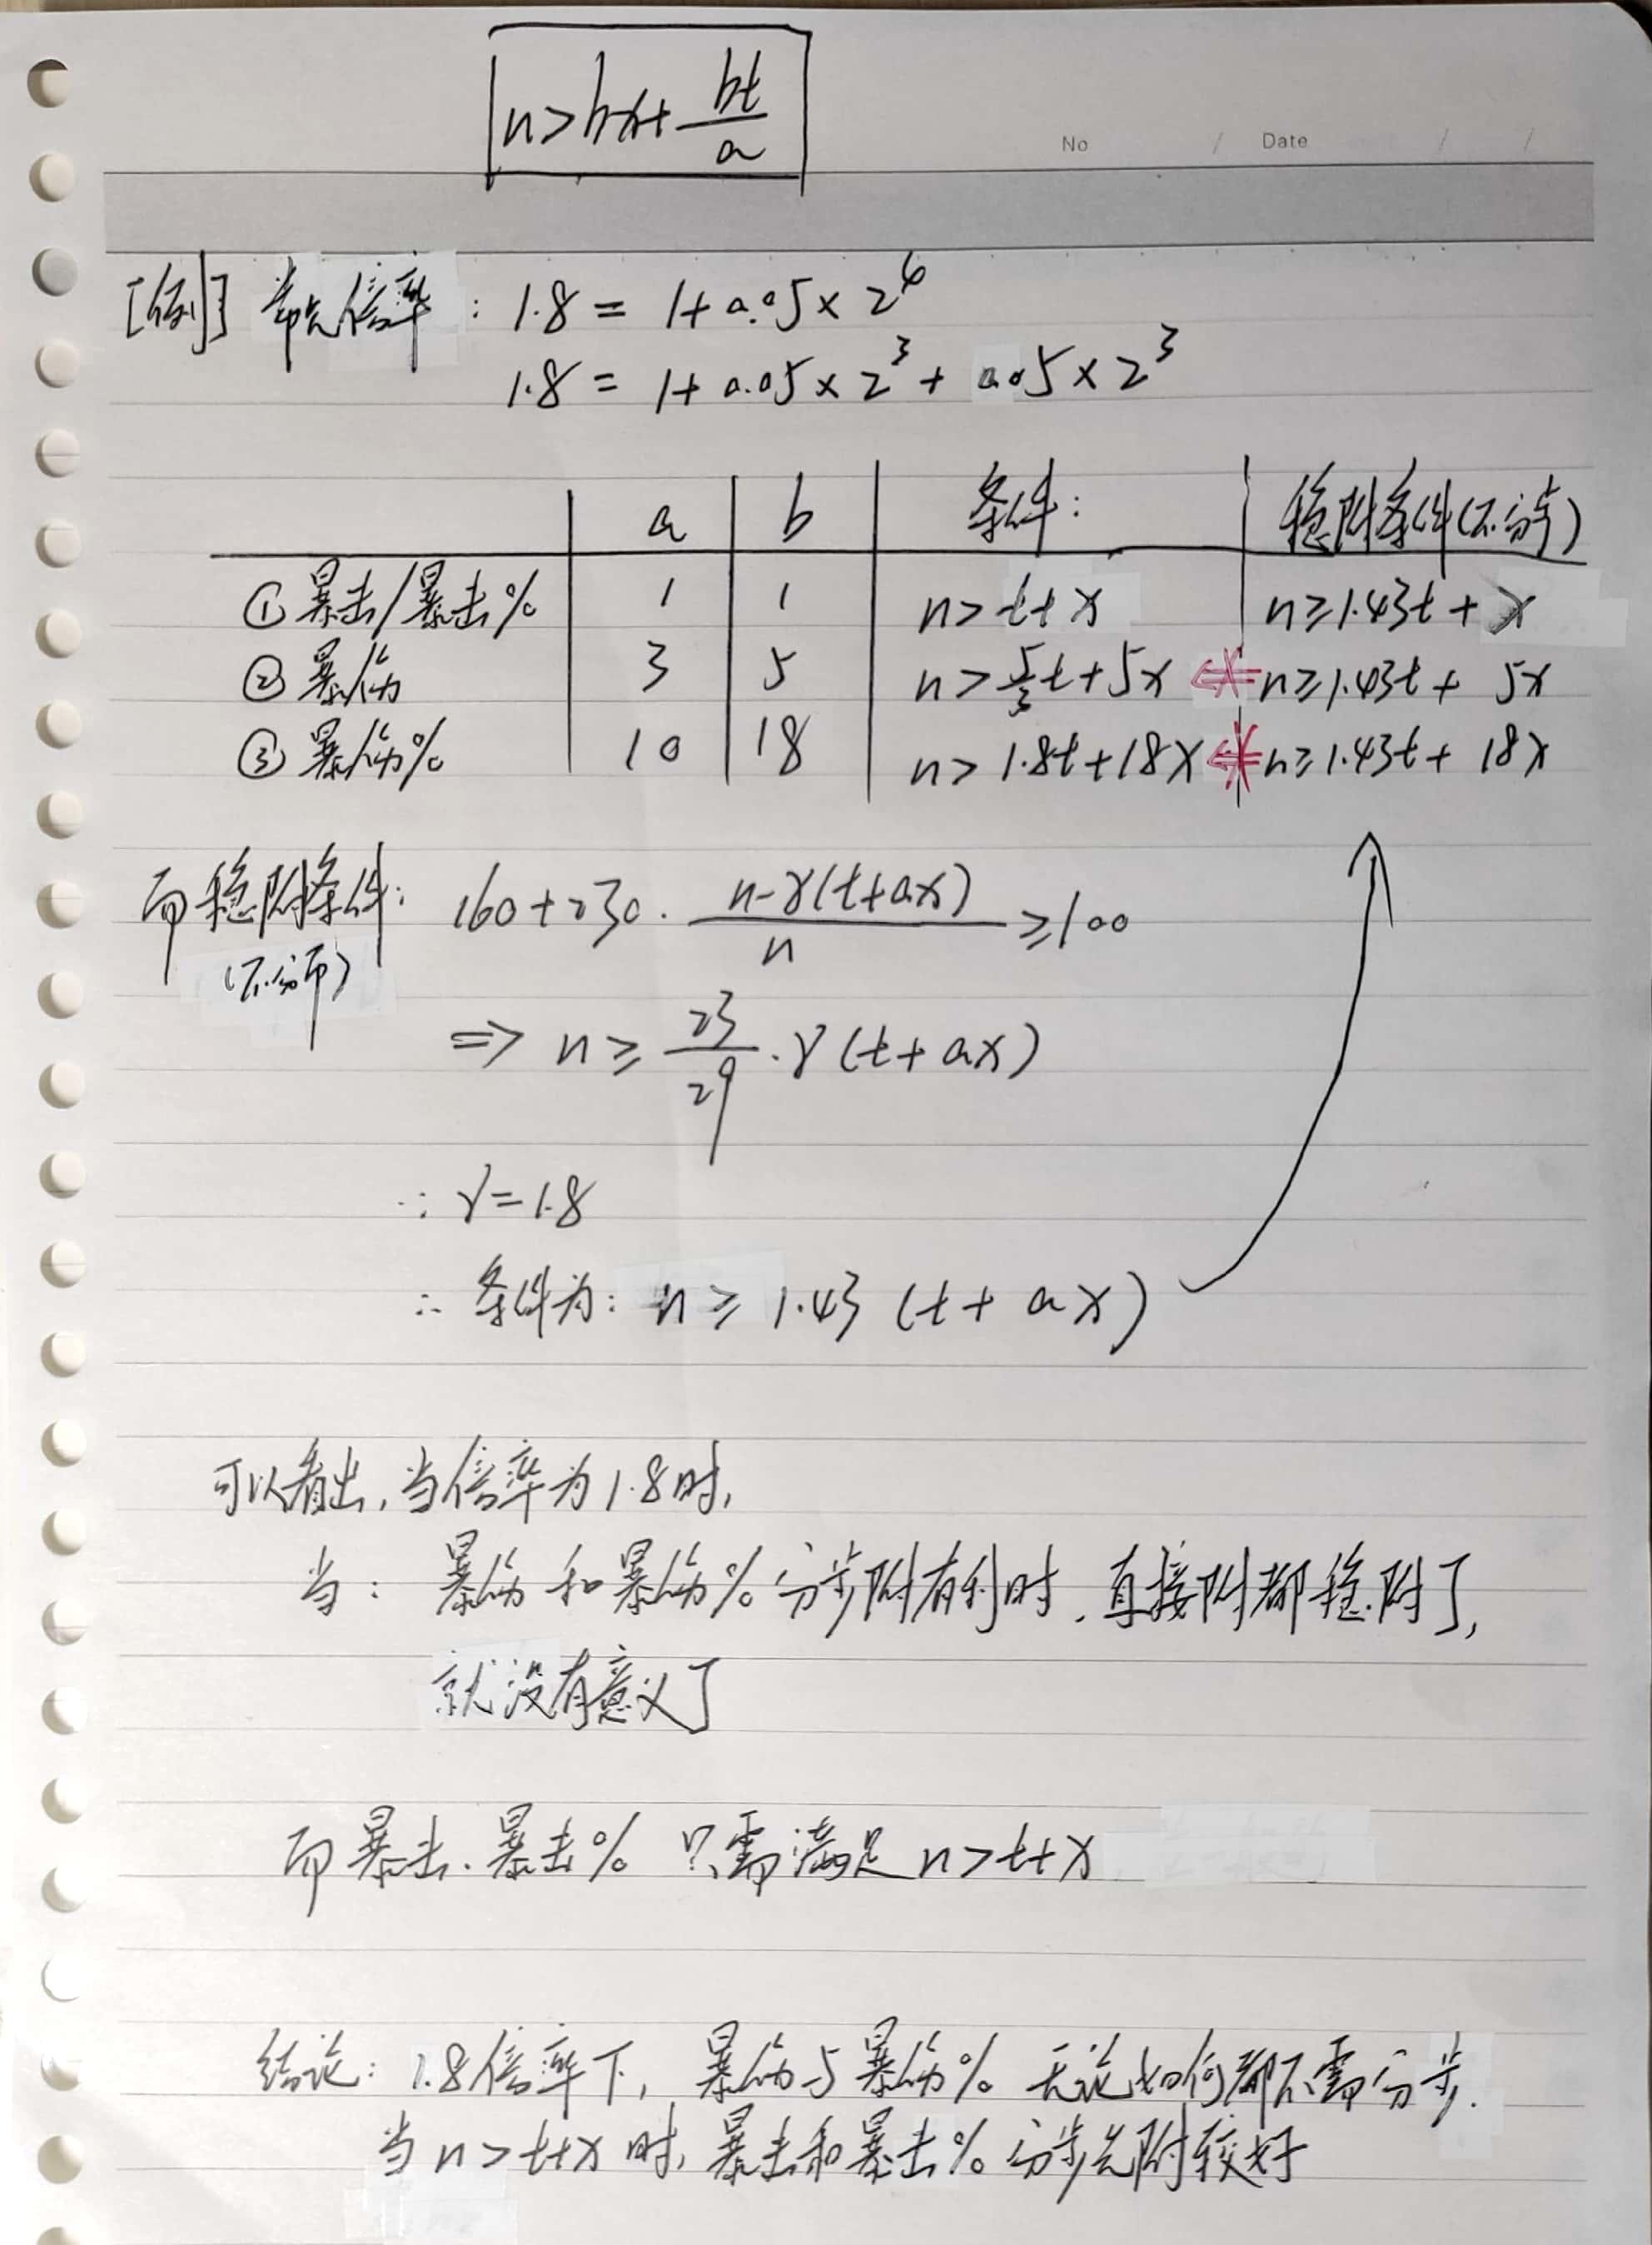 n>bx+bt/a
No / Date / /
[例] 常见倍率: 1.8 = 1+0.05×2⁴
1.8 = 1+0.05×2³+0.05×2³
a b 条件: 稳附条件(不分步)
①暴击/暴击% 1 1 n>t+x n≥1.43t+x
②暴伤 3 5 n>5/3t+5x ⇐ n≥1.43t+5x
③暴伤% 10 18 n>1.8t+18x ⇐ n≥1.43t+18x
而稳附条件: 160+230·(n-γ(t+ax))/n≥100
(不分步)
⇒ n≥23/29·γ(t+ax)
∵ γ=1.8
∴ 条件为: n≥1.43(t+ax)
可以看出,当倍率为1.8时,
当: 暴伤和暴伤%分步附有利时,直接附都稳附了,
就没有意义了
而暴击、暴击%只需满足n>t+x
结论: 1.8倍率下,暴伤与暴伤%无论如何都不需分步.
当n>t+x时,暴击和暴击%分步先附较好